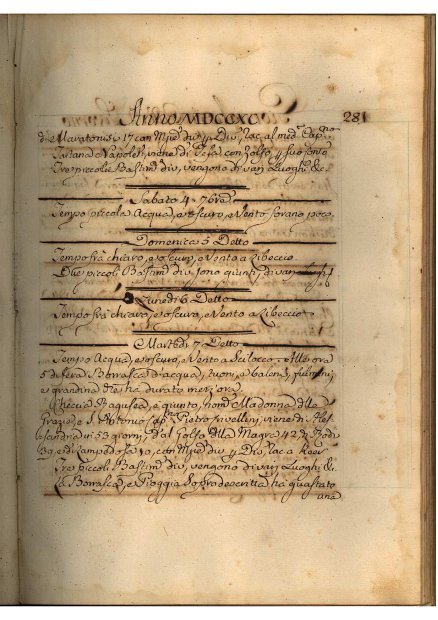 Anno MDCCXC 281
di Maratonisi 17 con Mpie du. p Div, rac. al med. Cap.no
Tartana Napolit. viene di con Zolfo, p suo conto
Tre piccoli Bastim. div, vengono di vari Luoghi &c.
Sabato 4. 7bre
Tempo piccola Acqua, e oscuro, e Vento Sorano poco.
Domenica 5 Detto
Tempo frà chiaro, e oscuro, e Vento a Libeccio
Due piccoli Bastim. div sono giunti, di vari
Lunedi 6 Detto
Tempo frà chiaro, e oscuro, e Vento a Libeccio
Martedi 7 Detto
Tempo Acqua, e oscuro, e Vento a Scilocco. Alle ora
5 di sera Borrasca d'acqua, tuoni, e baleni, fulmini,
e grandine che ha durato mezz'ora.
Checcia Ragusea, e giunto, nom. Madonna dlle
Grazie, e S. Antonio, Cap.n Pietro viene di Ales
sandria in 53 giorni, dal Golfo dlla Magra 42, di Rodi
39, e di Lampedosa 10, con Mpie div p Div, rac. a
Tre piccoli Bastim. div, vengono di vari Luoghi &c.
La Borrasca, e Pioggia Sopradescritta ha guastato
una